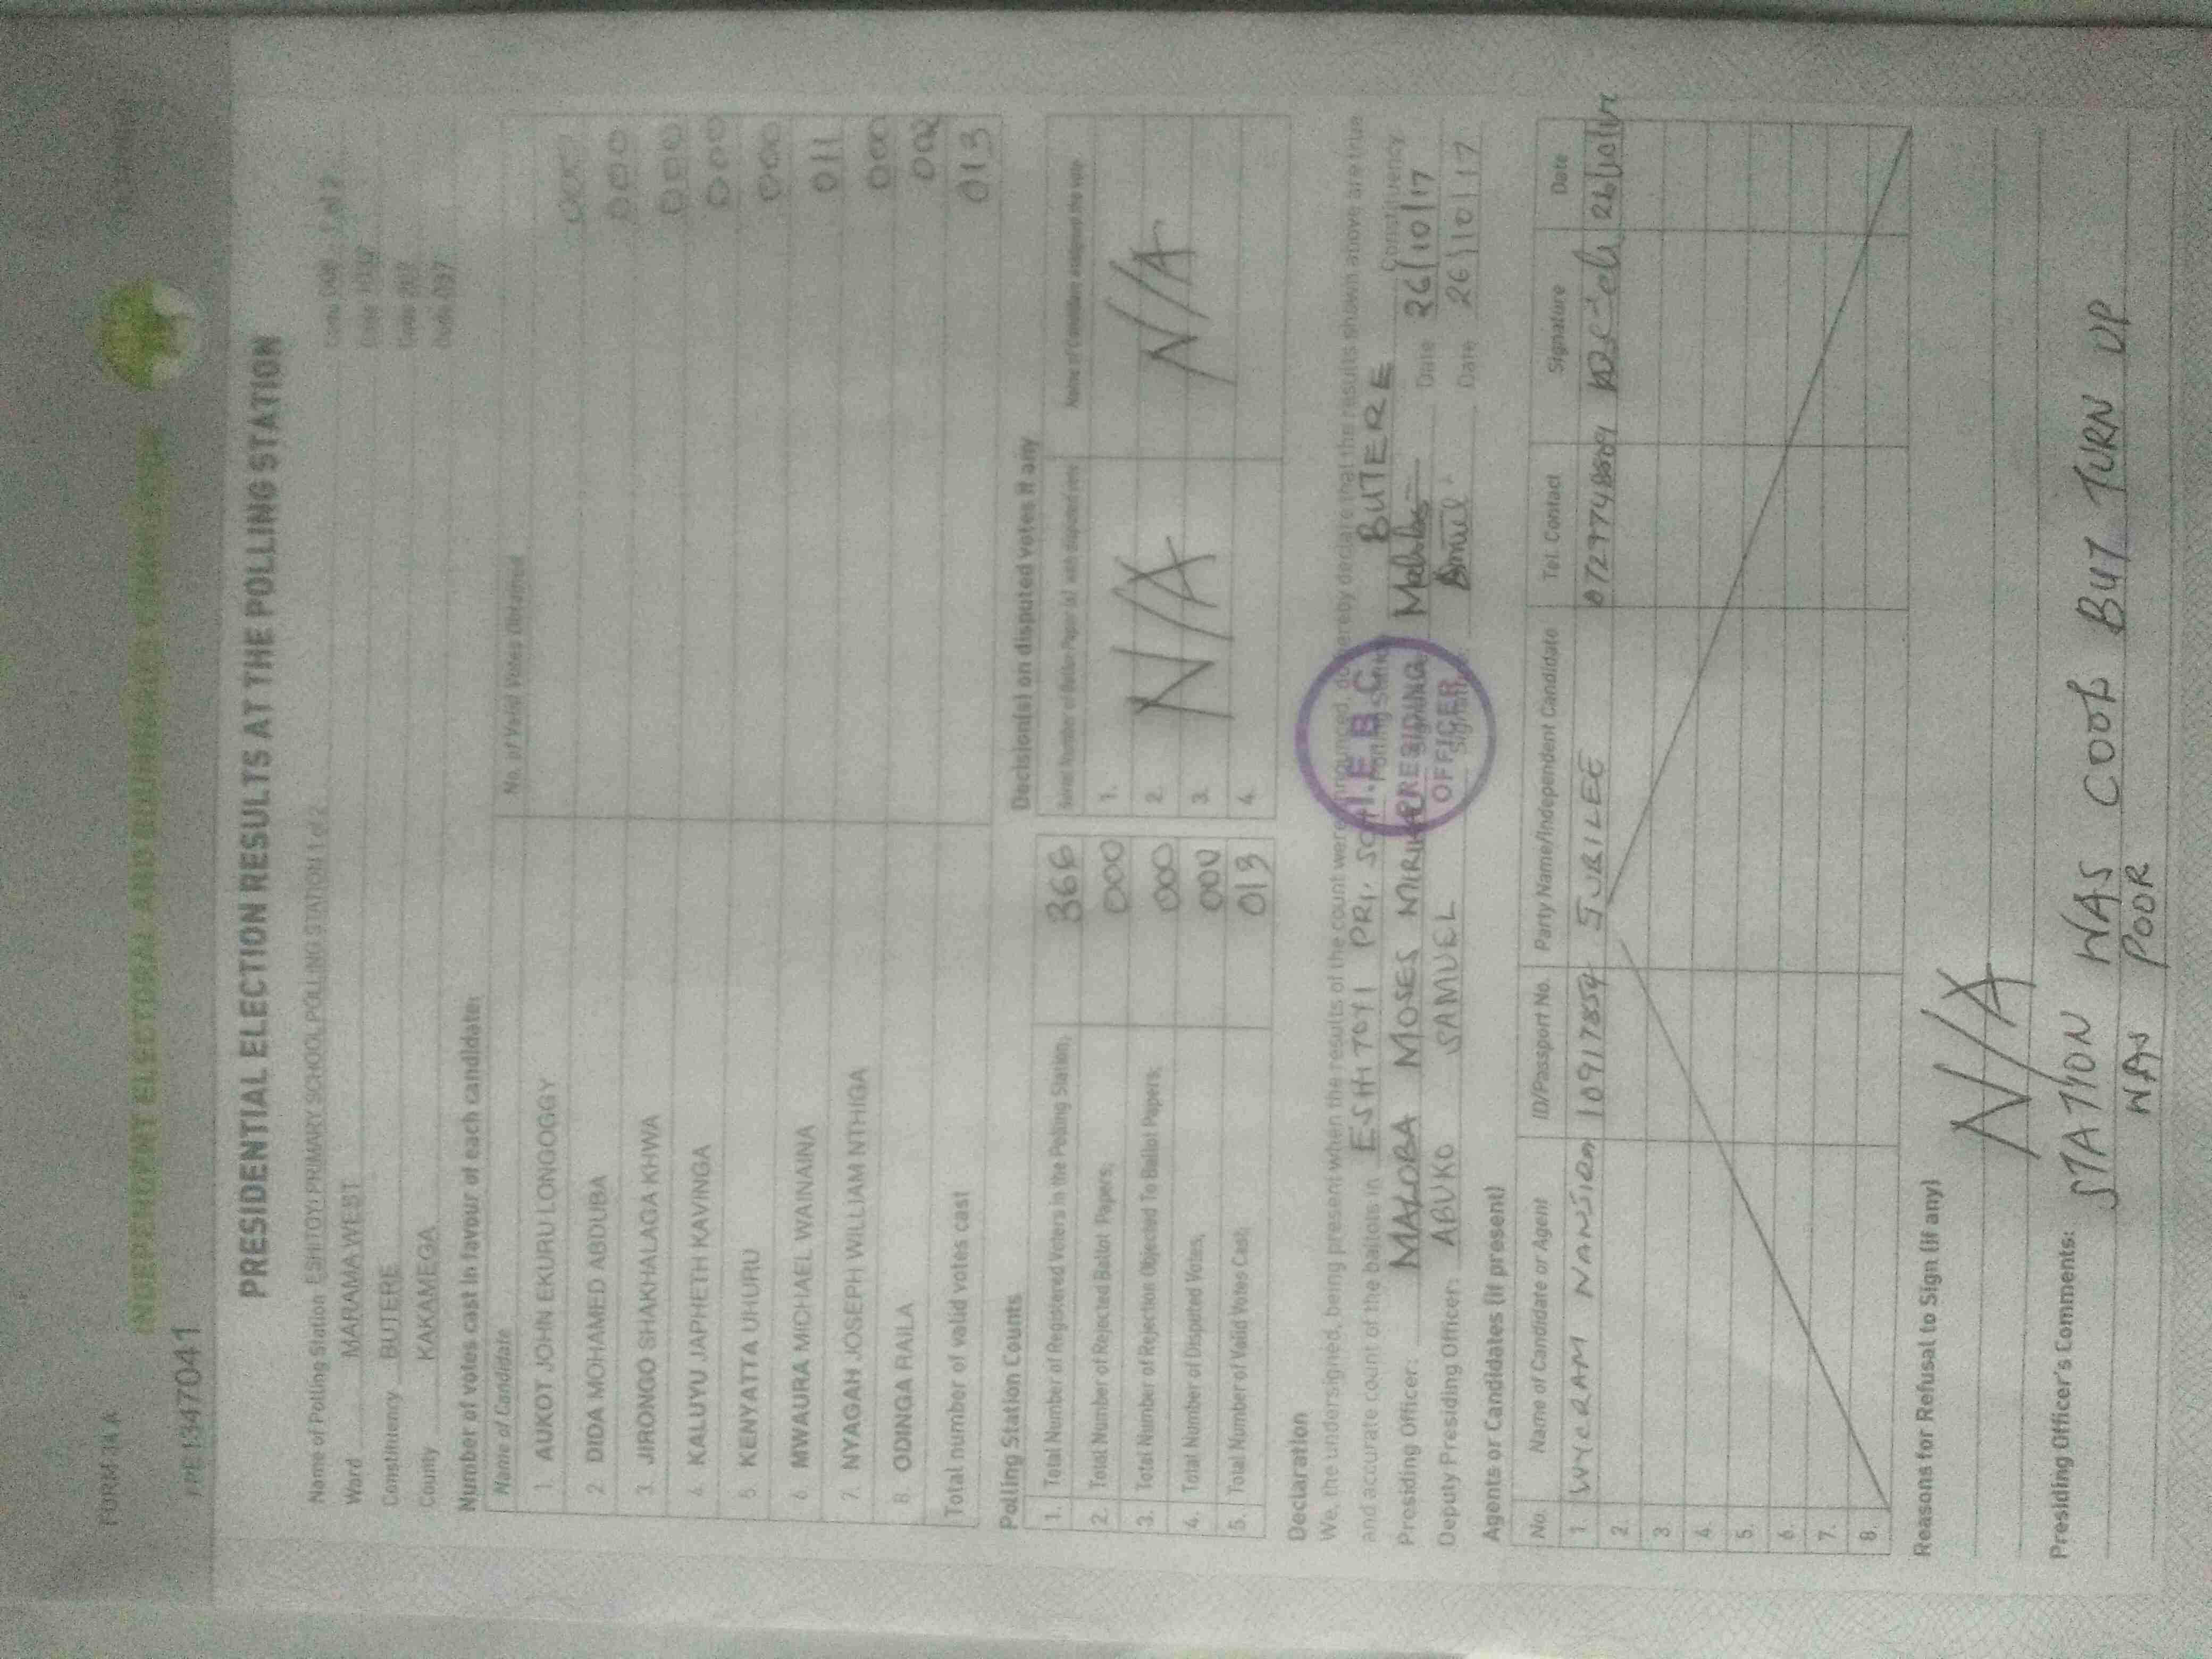 FORM 34 A
INDEPENDENT ELECTORAL AND BOUNDARIES COMMISSION
PE 1347041
PRESIDENTIAL ELECTION RESULTS AT THE POLLING STATION
Name of Polling Station ESHITOYI PRIMARY SCHOOL POLLING STATION 1 of 2
Ward MARAMA WEST
Constituency BUTERE
County KAKAMEGA Code 037
Number of votes cast in favour of each candidate:
Name of Candidate No. of Valid Votes Obtained
1. AUKOT JOHN EKURU LONGOGGY
2. DIDA MOHAMED ABDUBA 000
3. JIRONGO SHAKHALAGA KHWA 000
4. KALUYU JAPHETH KAVINGA 000
5. KENYATTA UHURU 000
6. MWAURA MICHAEL WAINAINA 011
7. NYAGAH JOSEPH WILLIAM NTHIGA 000
8. ODINGA RAILA 002
Total number of valid votes cast 013
Polling Station Counts
1. Total Number of Registered Voters in the Polling Station; 366
2. Total Number of Rejected Ballot Papers; 000
3. Total Number of Rejection Objected To Ballot Papers; 000
4. Total Number of Disputed Votes; 000
5. Total Number of Valid Votes Cast; 013
Decision(s) on disputed votes if any
Serial Number of Ballot Paper (s) with disputed vote Name of Candidate assigned the vote
1.
2. N/A N/A
3.
4.
Declaration
We, the undersigned, being present when the results of the count were announced, do hereby declare that the results shown above are true
and accurate count of the ballots in ESHITOYI PRI, SCH Polling Station BUTERE Constituency
Presiding Officer: MALOBA MOSES Date 26/10/17
Deputy Presiding Officer: ABUKO SAMUEL Signature Date 26/10/17
I.E.B.C
PRESIDING
OFFICER
Agents or Candidates (if present)
No. Name of Candidate or Agent ID/Passport No. Party Name/Independent Candidate Tel. Contact Signature Date
1. 10917854 JUBILEE
2.
3.
4.
5.
6.
7.
8.
Reasons for Refusal to Sign (if any)
N/A
Presiding Officer's Comments:
STATION WAS COOL BUT TURN UP
WAS POOR